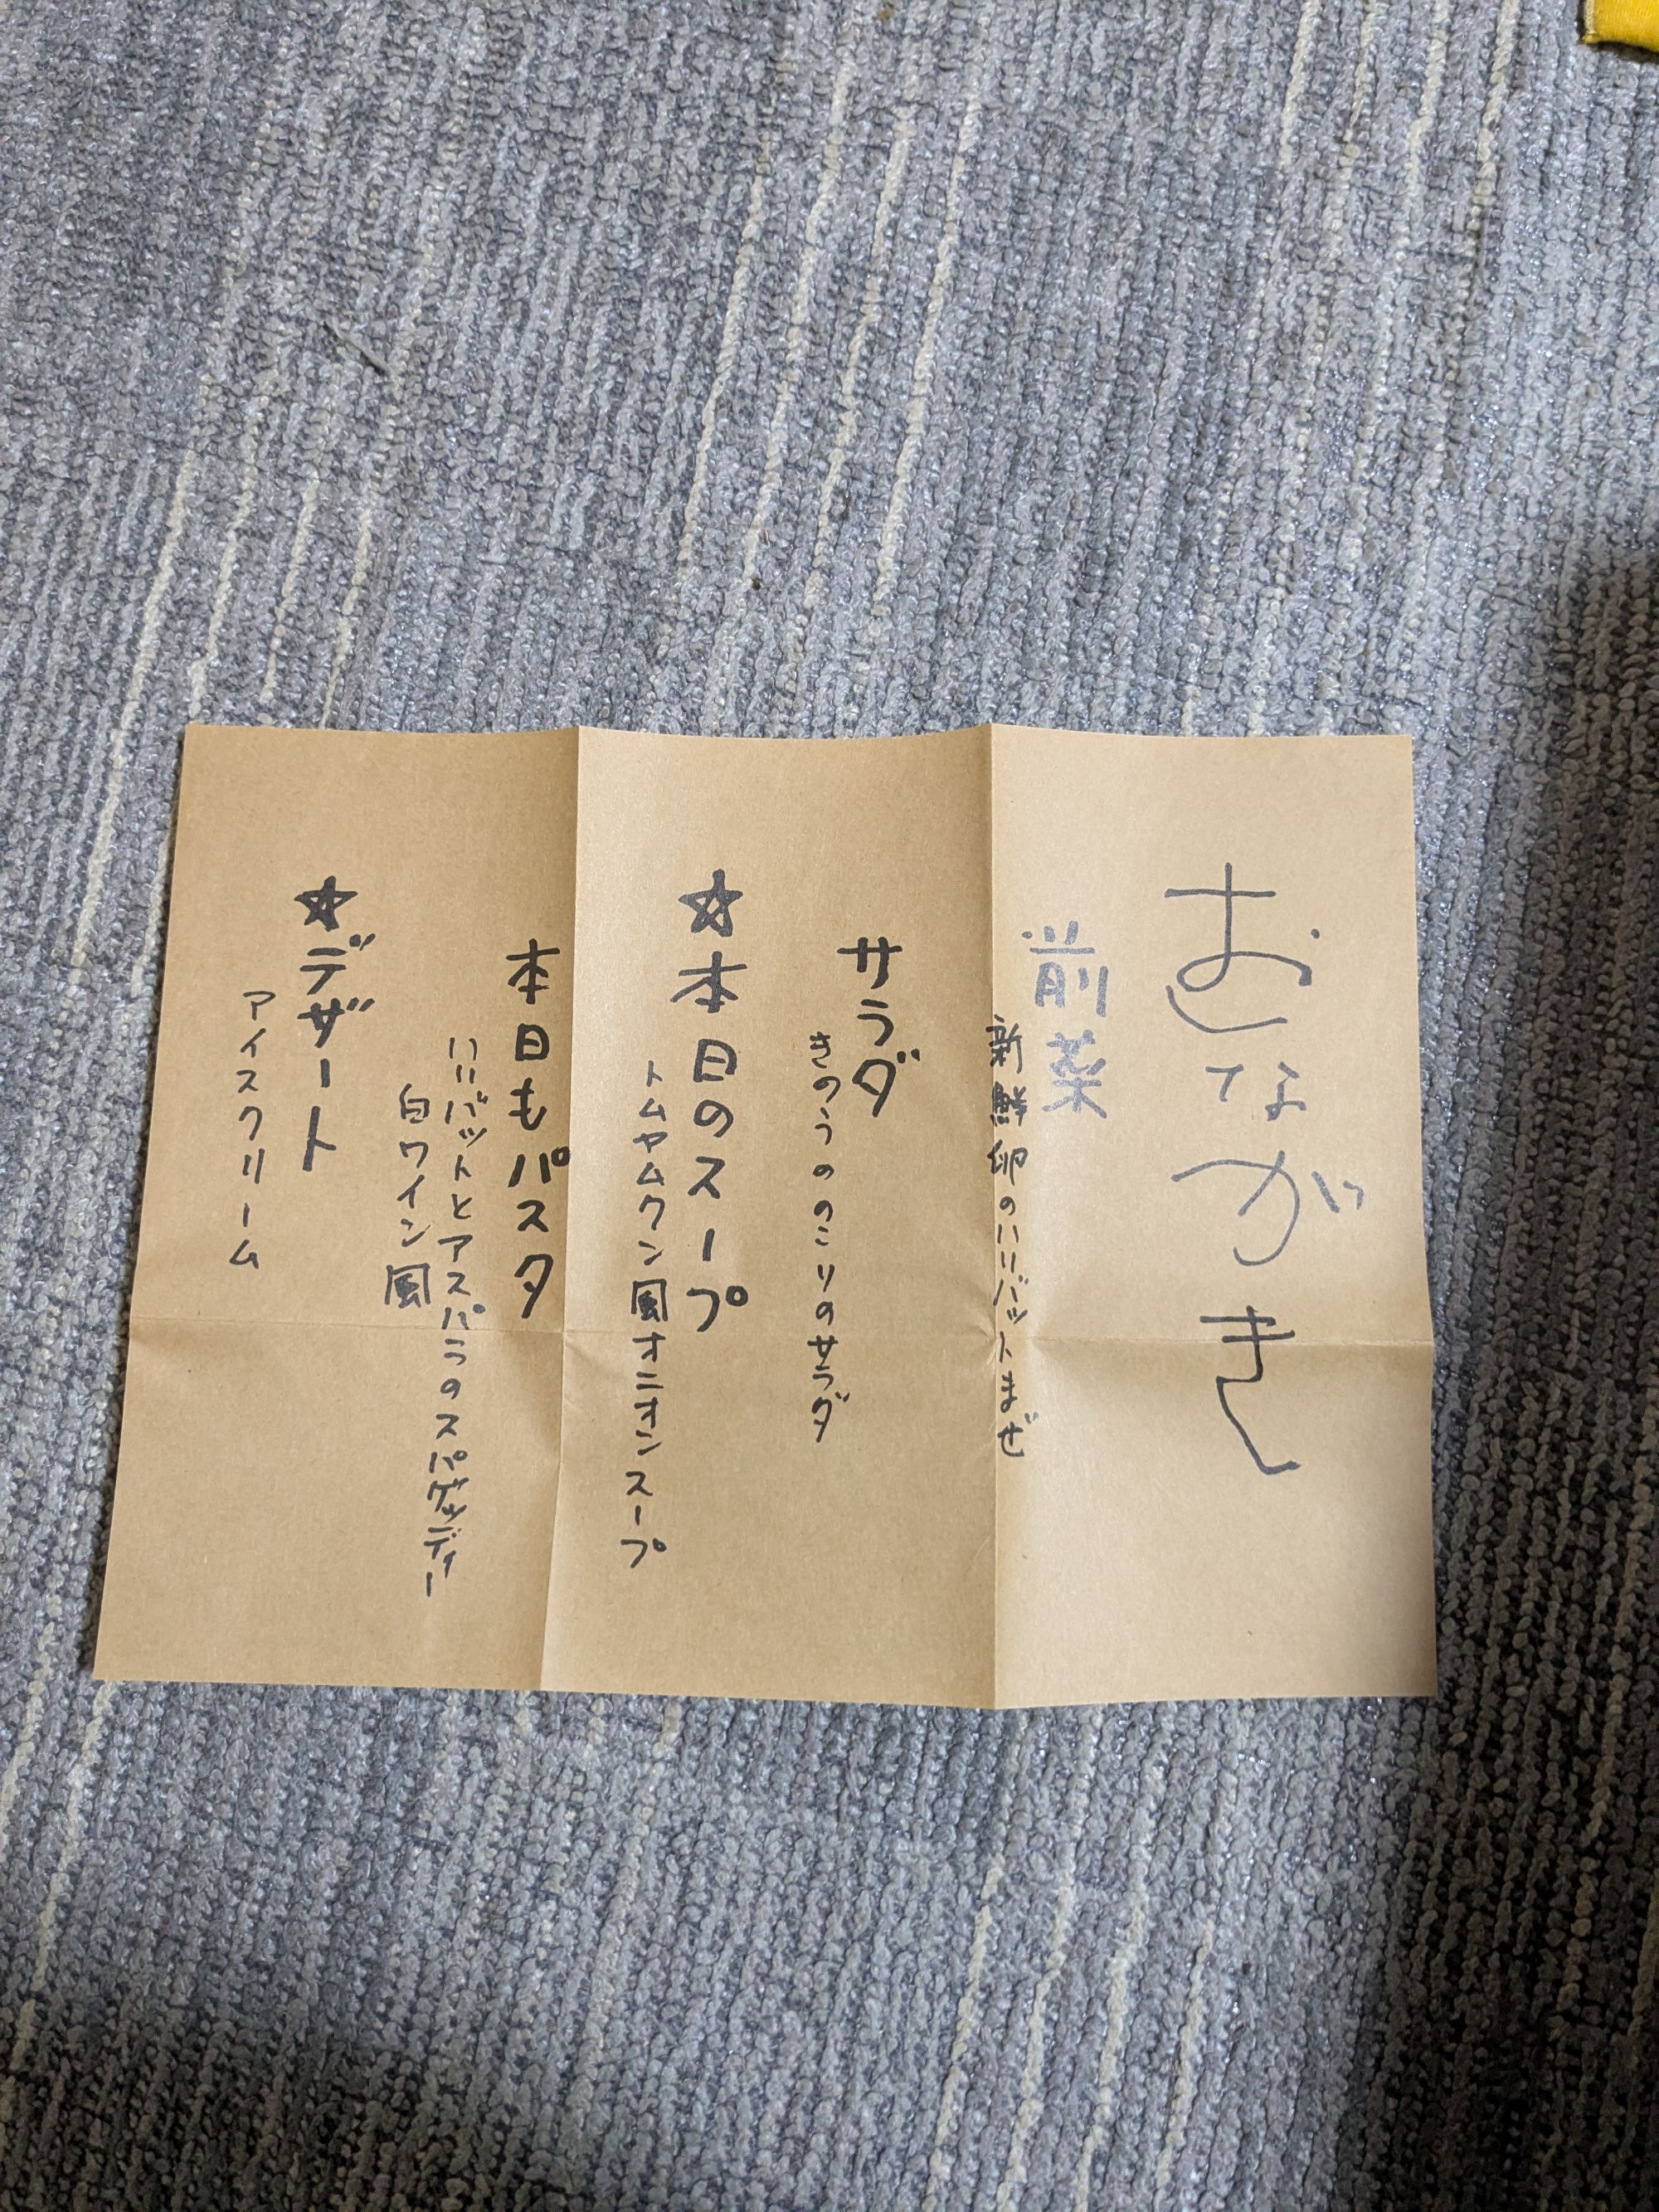 おしながき
前菜
新鮮卵のハリバットまぜ
サラダ
きのうののこりのサラダ
☆本日のスープ
トムヤムクン風オニオンスープ
本日もパスタ
ハリバットとアスパラのスパゲッティー
白ワイン風
☆デザート
アイスクリーム